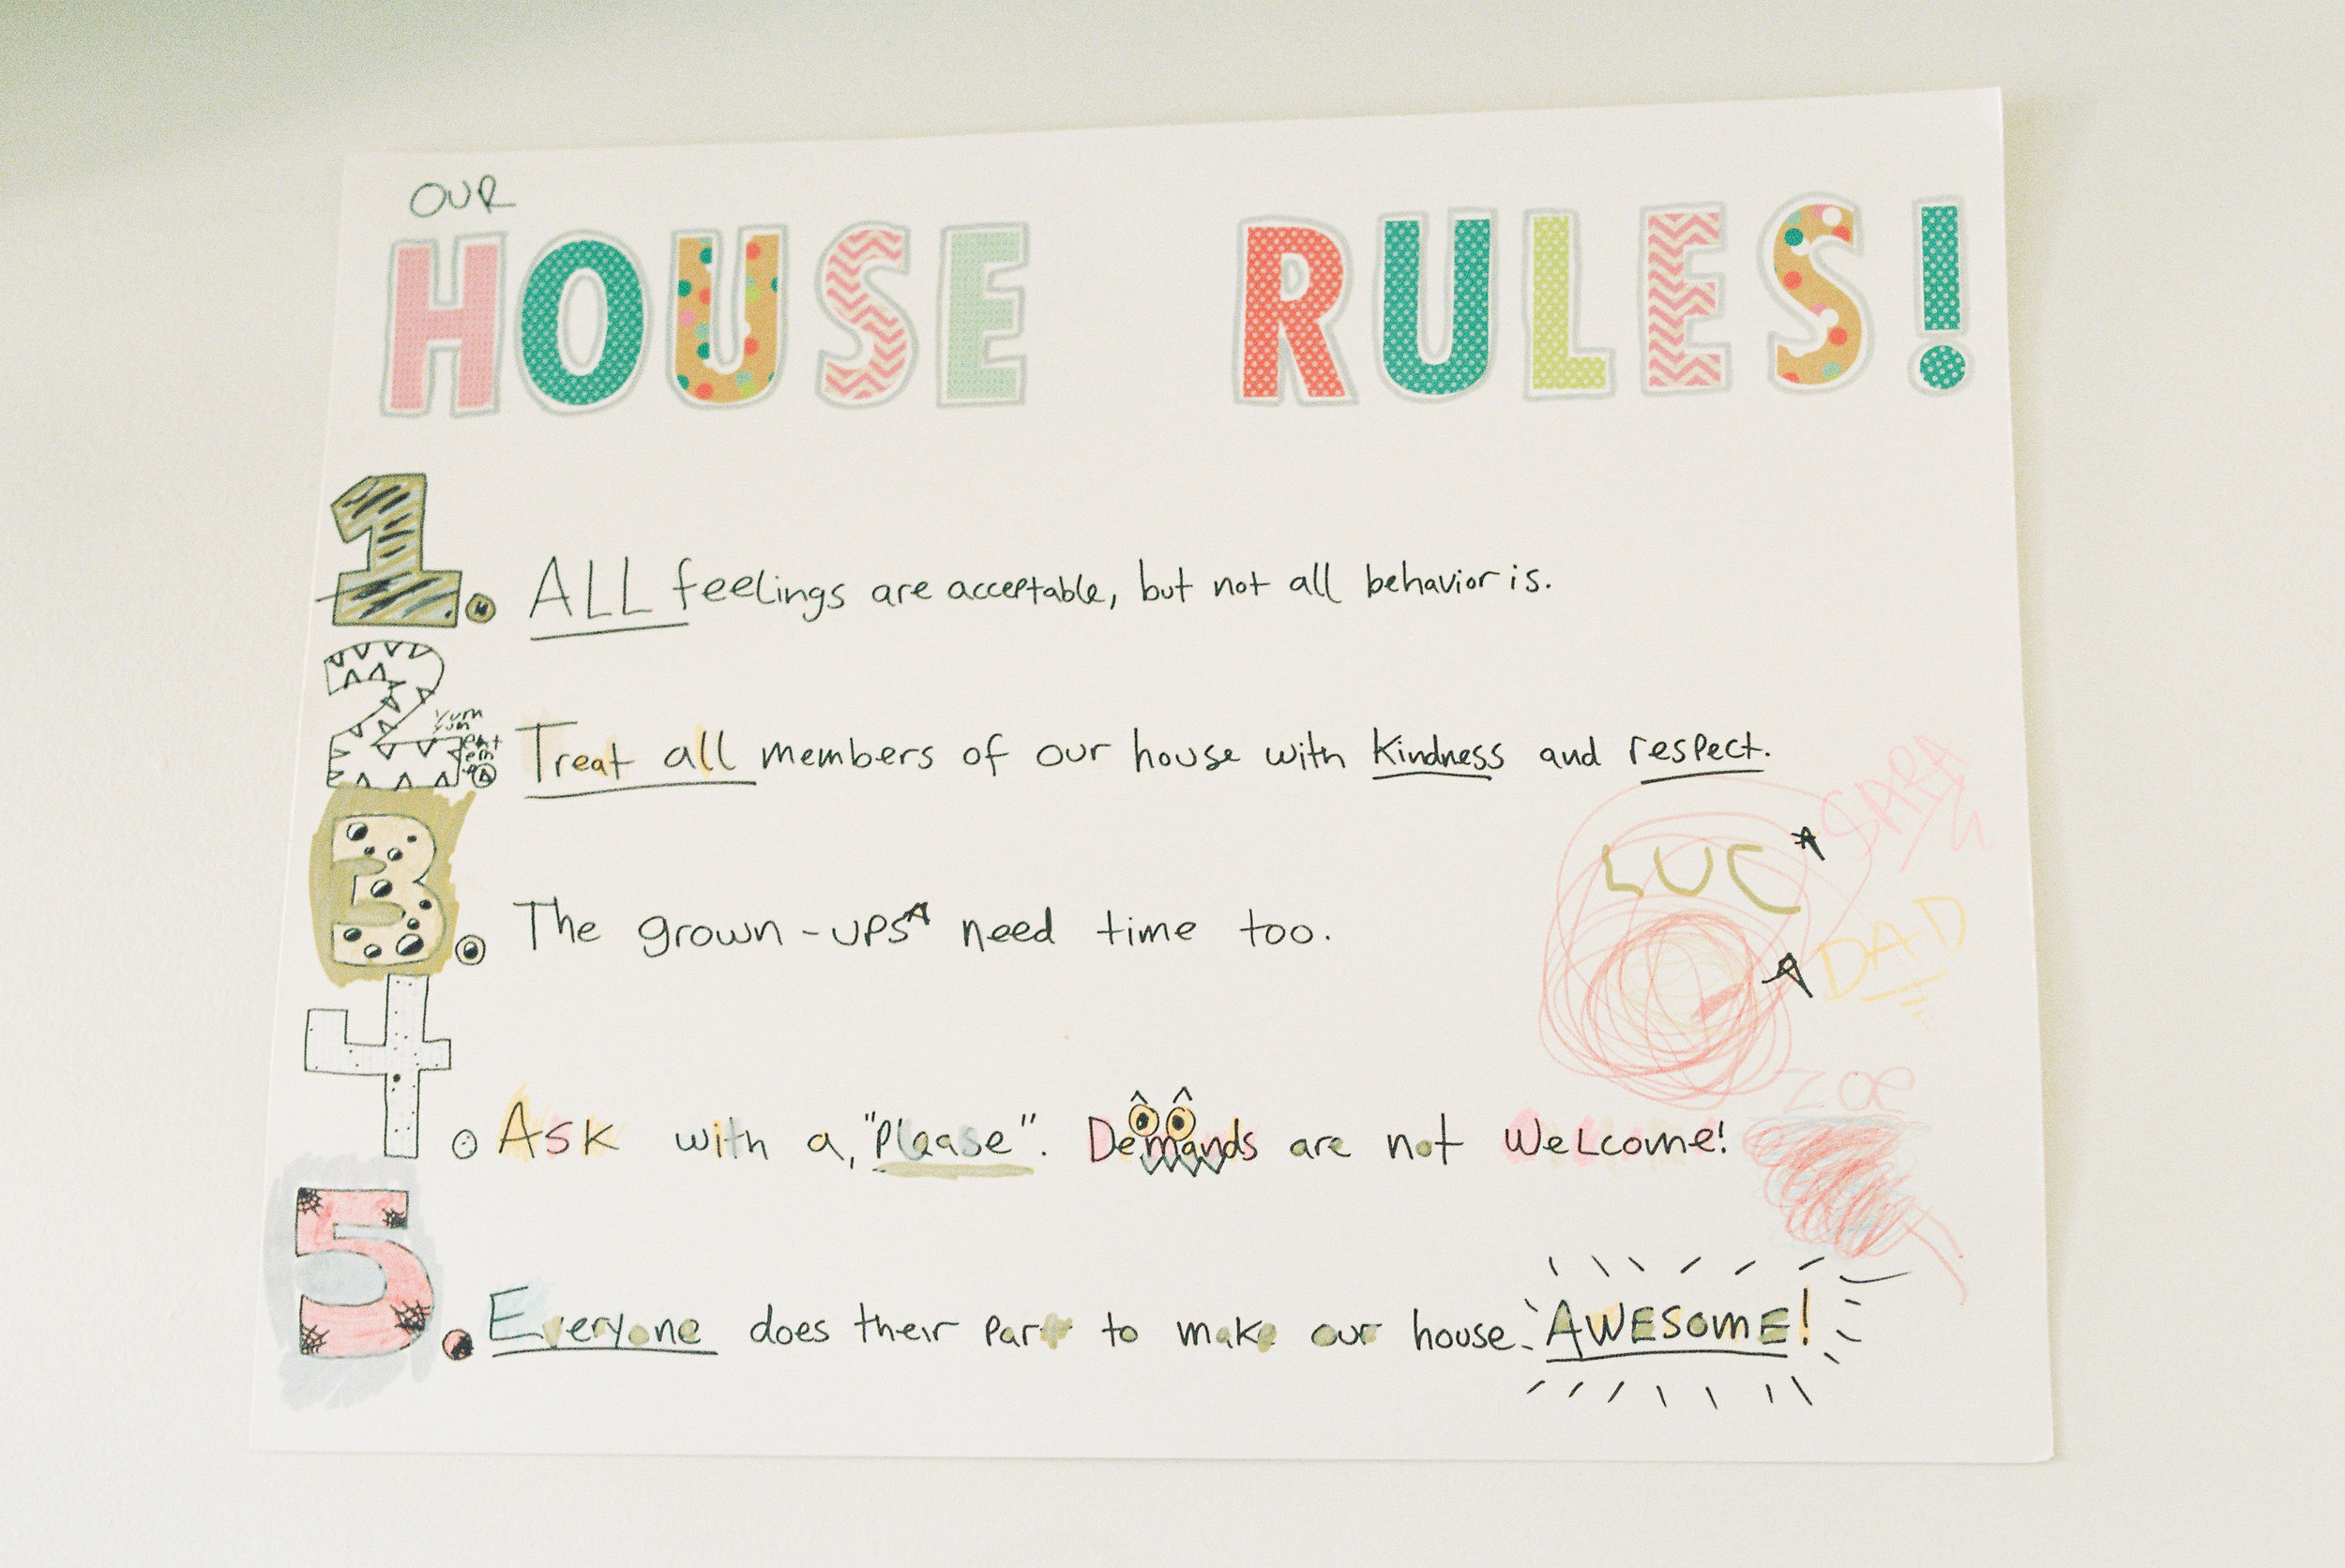 OUR
HOUSE RULES!
1. ALL feelings are acceptable, but not all behavior is.
2. Treat all members of our house with kindness and respect.
Yum
Yum
3. The grown-ups need time too.
LUC
DAD
ZOE
4. Ask with a, "Please". Demands are not Welcome!
5. Everyone does their part to make our house AWESOME!